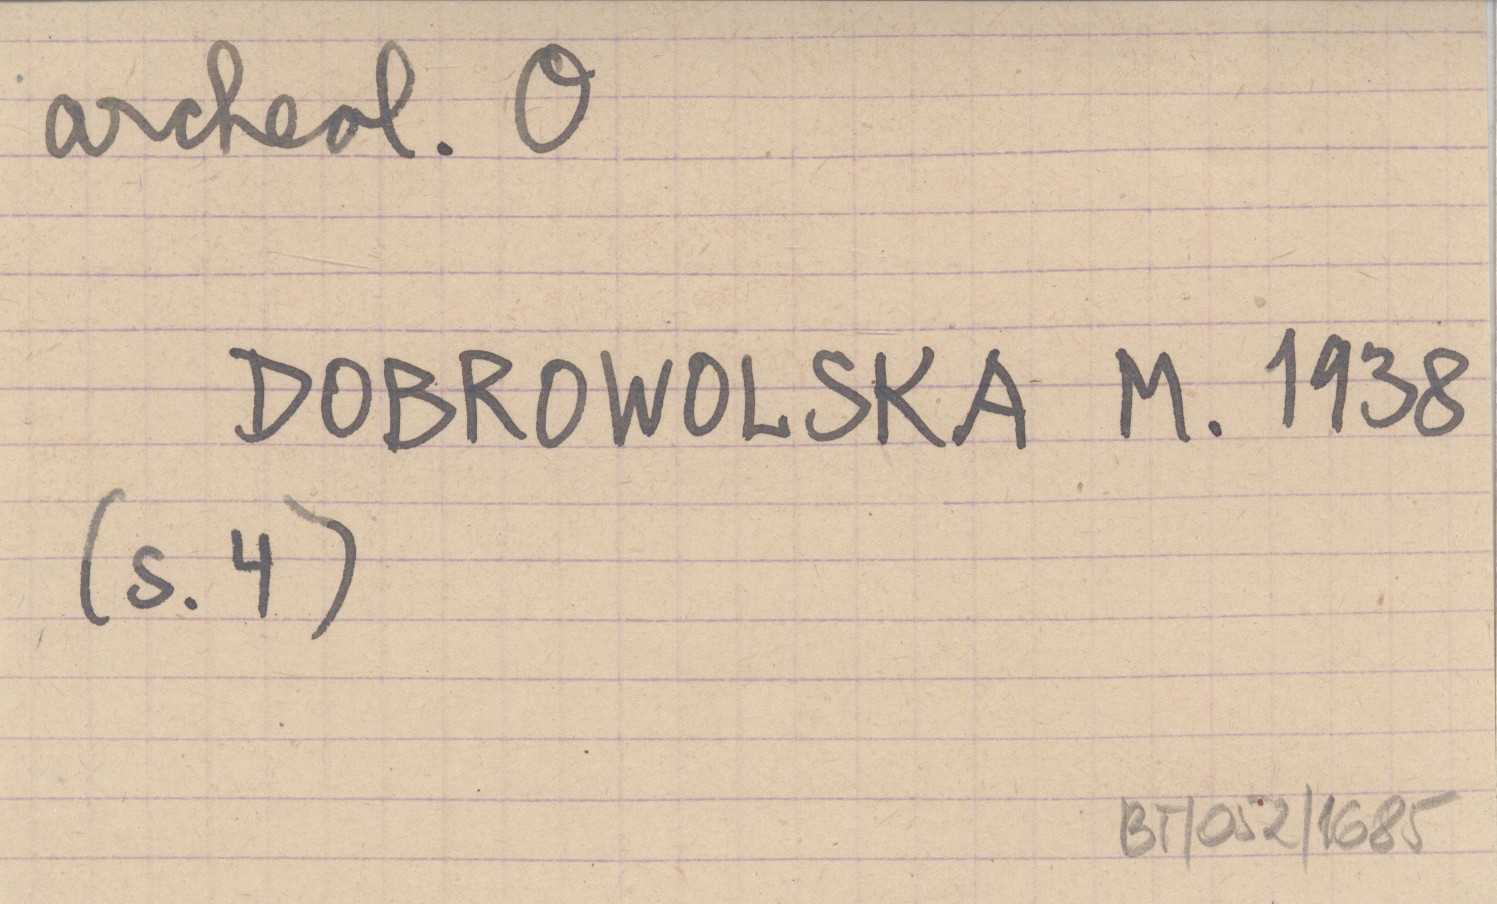 archeol. O
DOBROWOLSKA M. 1938
(s. 4)
BT/052/1685